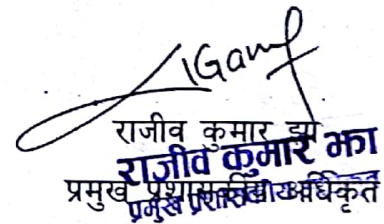 राजीव कुमार झा
राजीव कुमार झा
प्रमुख प्रशासकीय अधिकृत
प्रमुख प्रशासकीय अधिकृत